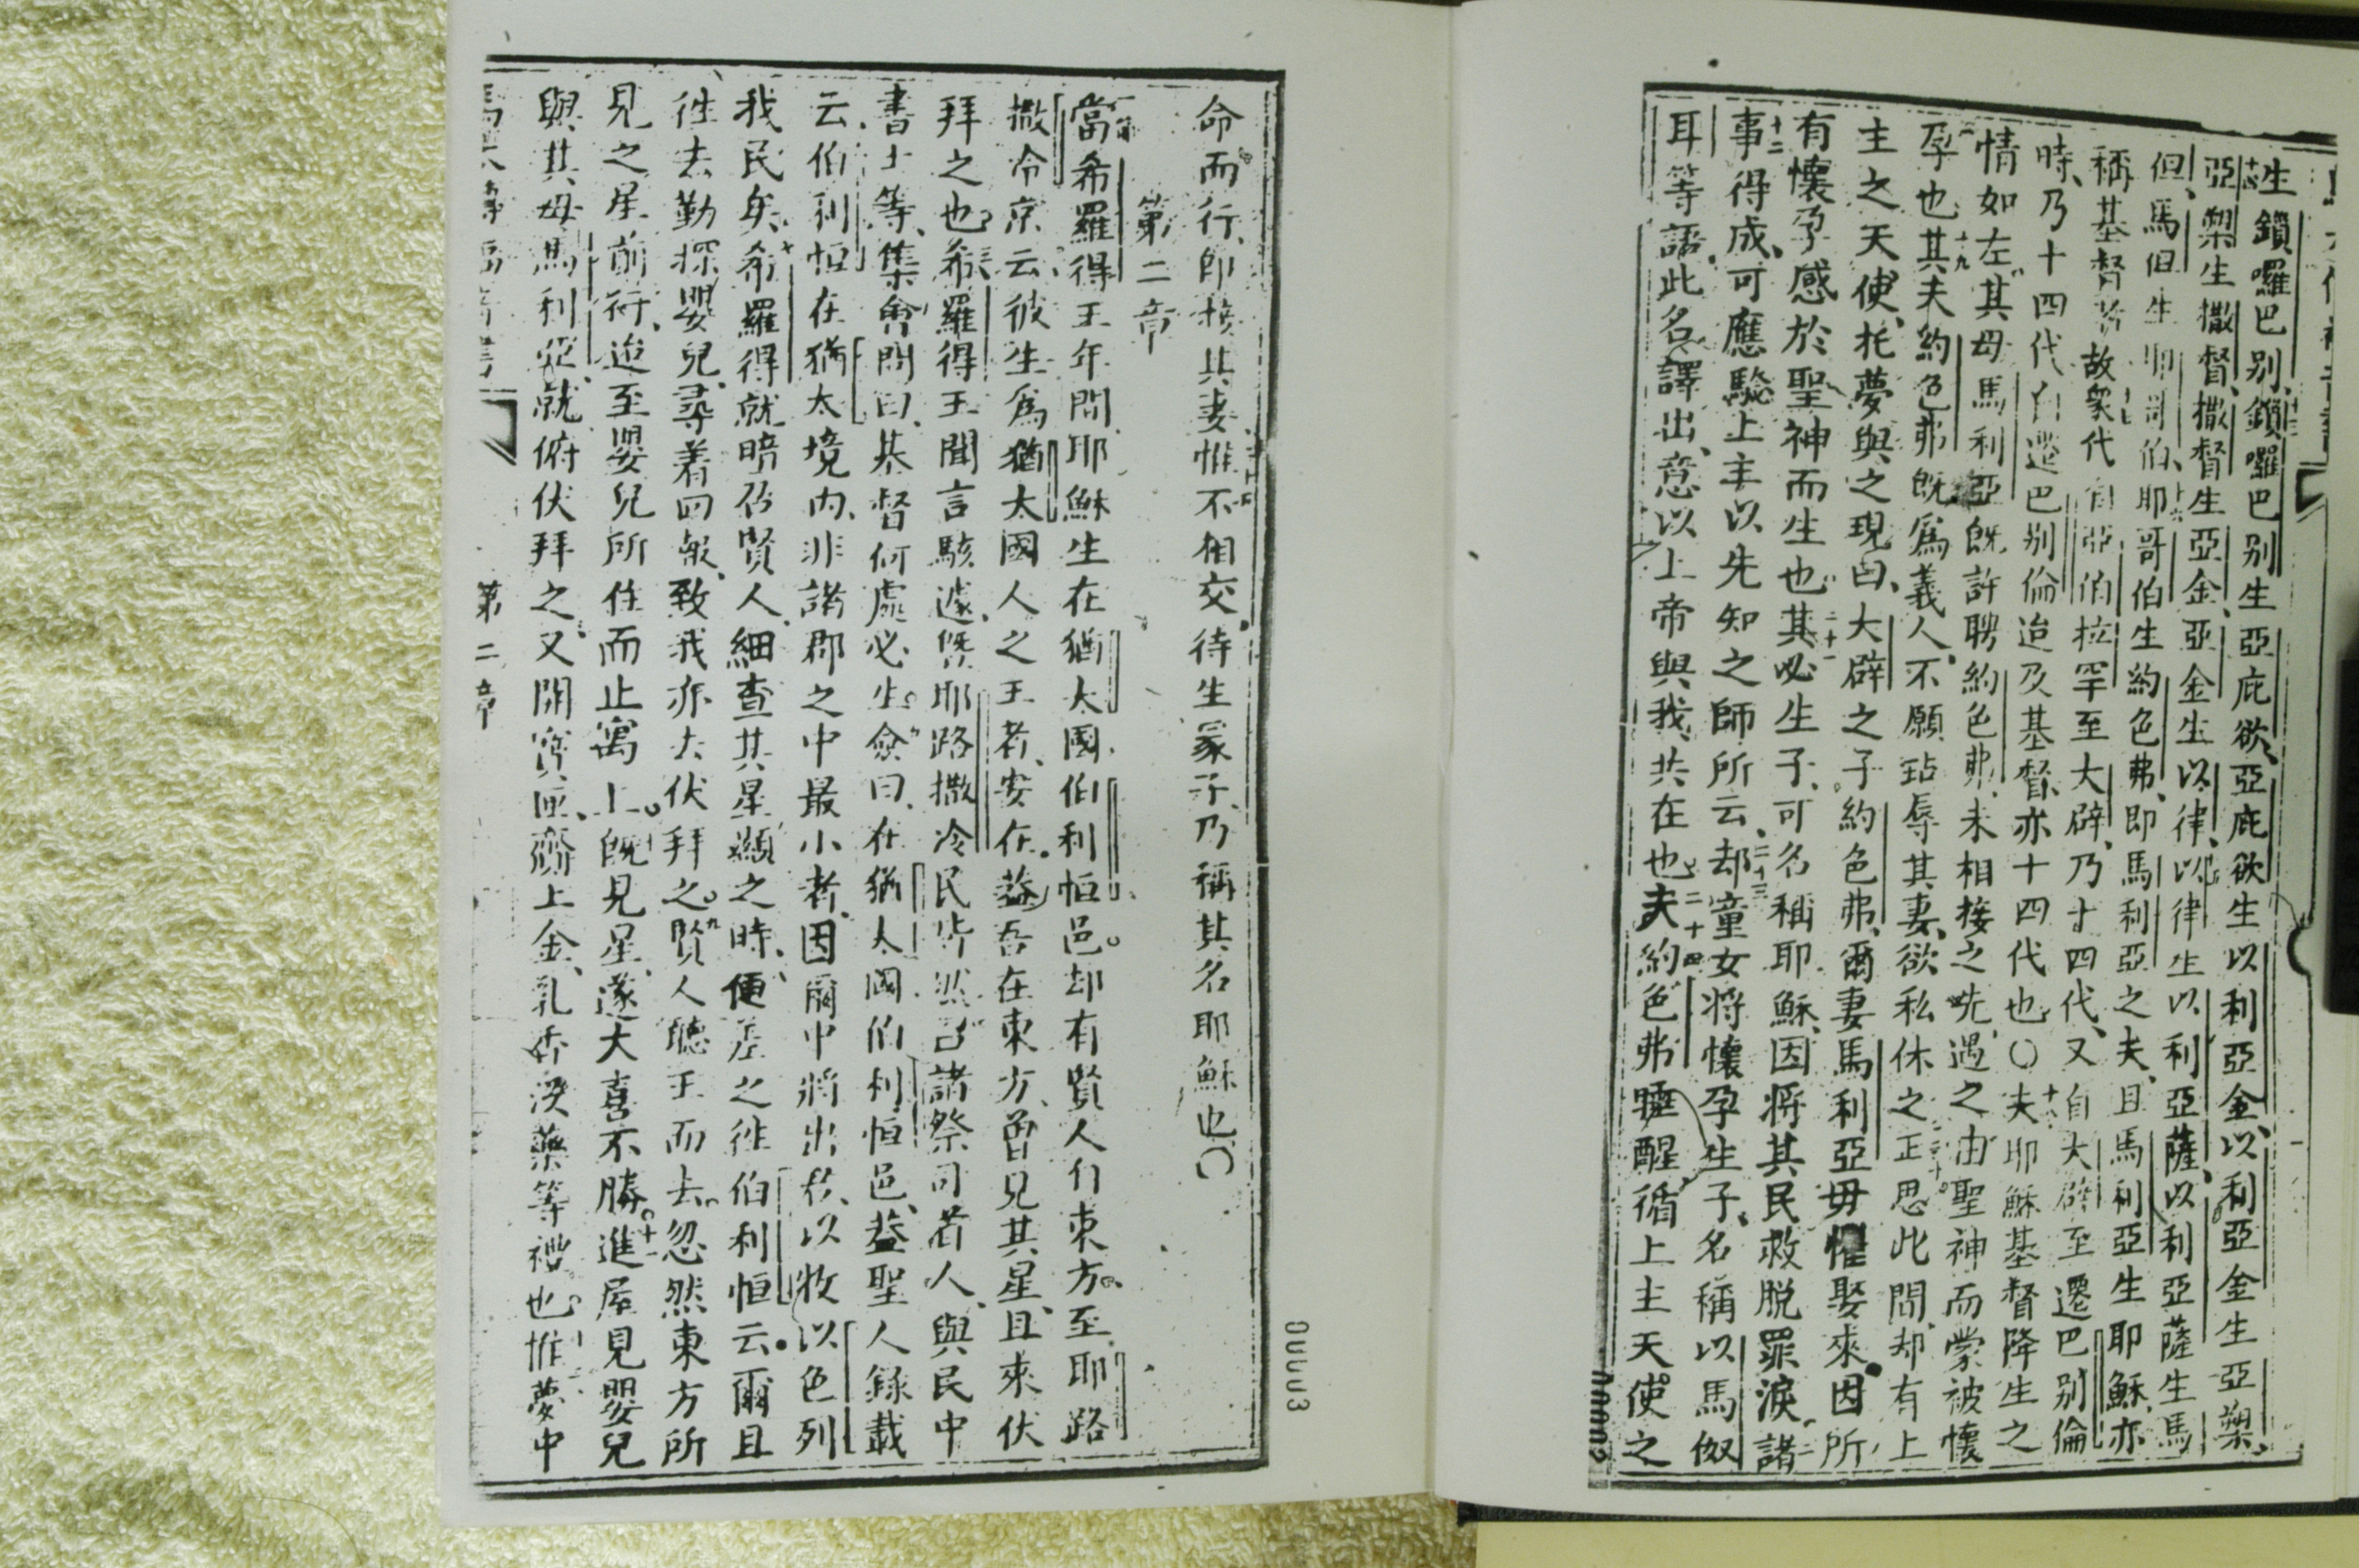 生鎖囉巴别鎖囉巴别生亞庇欲亞庇欲生以利亞金以利亞金生亞槊
亞槊生撒督撒督生亞金亞金生以律以律生以利亞薩以利亞薩生馬
但馬但生耶哥伯耶哥伯生約色弗即馬利亞之夫且馬利亞生耶穌亦
稱基督者故衆代自亞伯拉罕至大辟乃十四代又自大辟至遷巴别倫
時乃十四代自遷巴别倫迨及基督亦十四代也〇夫耶穌基督降生之
情如左其母馬利亞既許聘約色弗未相接之先遇之由聖神而蒙被懷
孕也其夫約色弗既爲義人不願玷辱其妻欲私休之正思此間却有上
主之天使托夢與之現曰大辟之子約色弗爾妻馬利亞毋懼娶來因所
有懷孕感於聖神而生也其必生子可名稱耶穌因將其民救脱罪淚諸
事得成可應驗上主以先知之師所云却童女將懷孕生子名稱以馬
耳等語此名譯出意以上帝與我共在也夫約色弗睡醒循上主天使之
00002
命而行即接其妻惟不相交待生冢子乃稱其名耶穌也〇
第二章
當希羅得王年間耶穌生在猶太國伯利恒邑却有賢人自東方至耶路
撒冷京云彼生爲猶太國人之王者安在蓋吾在東方曾見其星且來伏
拜之也希羅得王聞言駭遽暨耶路撒冷民皆然召諸祭司者人與民中
書士等集會問曰基督何處必生僉曰在猶太國伯利恒邑蓋聖人錄載
云伯利恒在猶太境内非諸郡之中最小者因爾中將出君以牧以色列
我民矣希羅得就暗召賢人細查其星顯之時便差之徃伯利恒云爾且
徃去勤探嬰兒尋着回報致我亦去伏拜之賢人聽王而去忽然東方所
見之星前行迨至嬰兒所住而止寓上既見星遂大喜不勝進屋見嬰兒
與其母馬利亞就俯伏拜之又開寶匣齎上金乳香沒藥等禮也惟夢中
第二章
00003